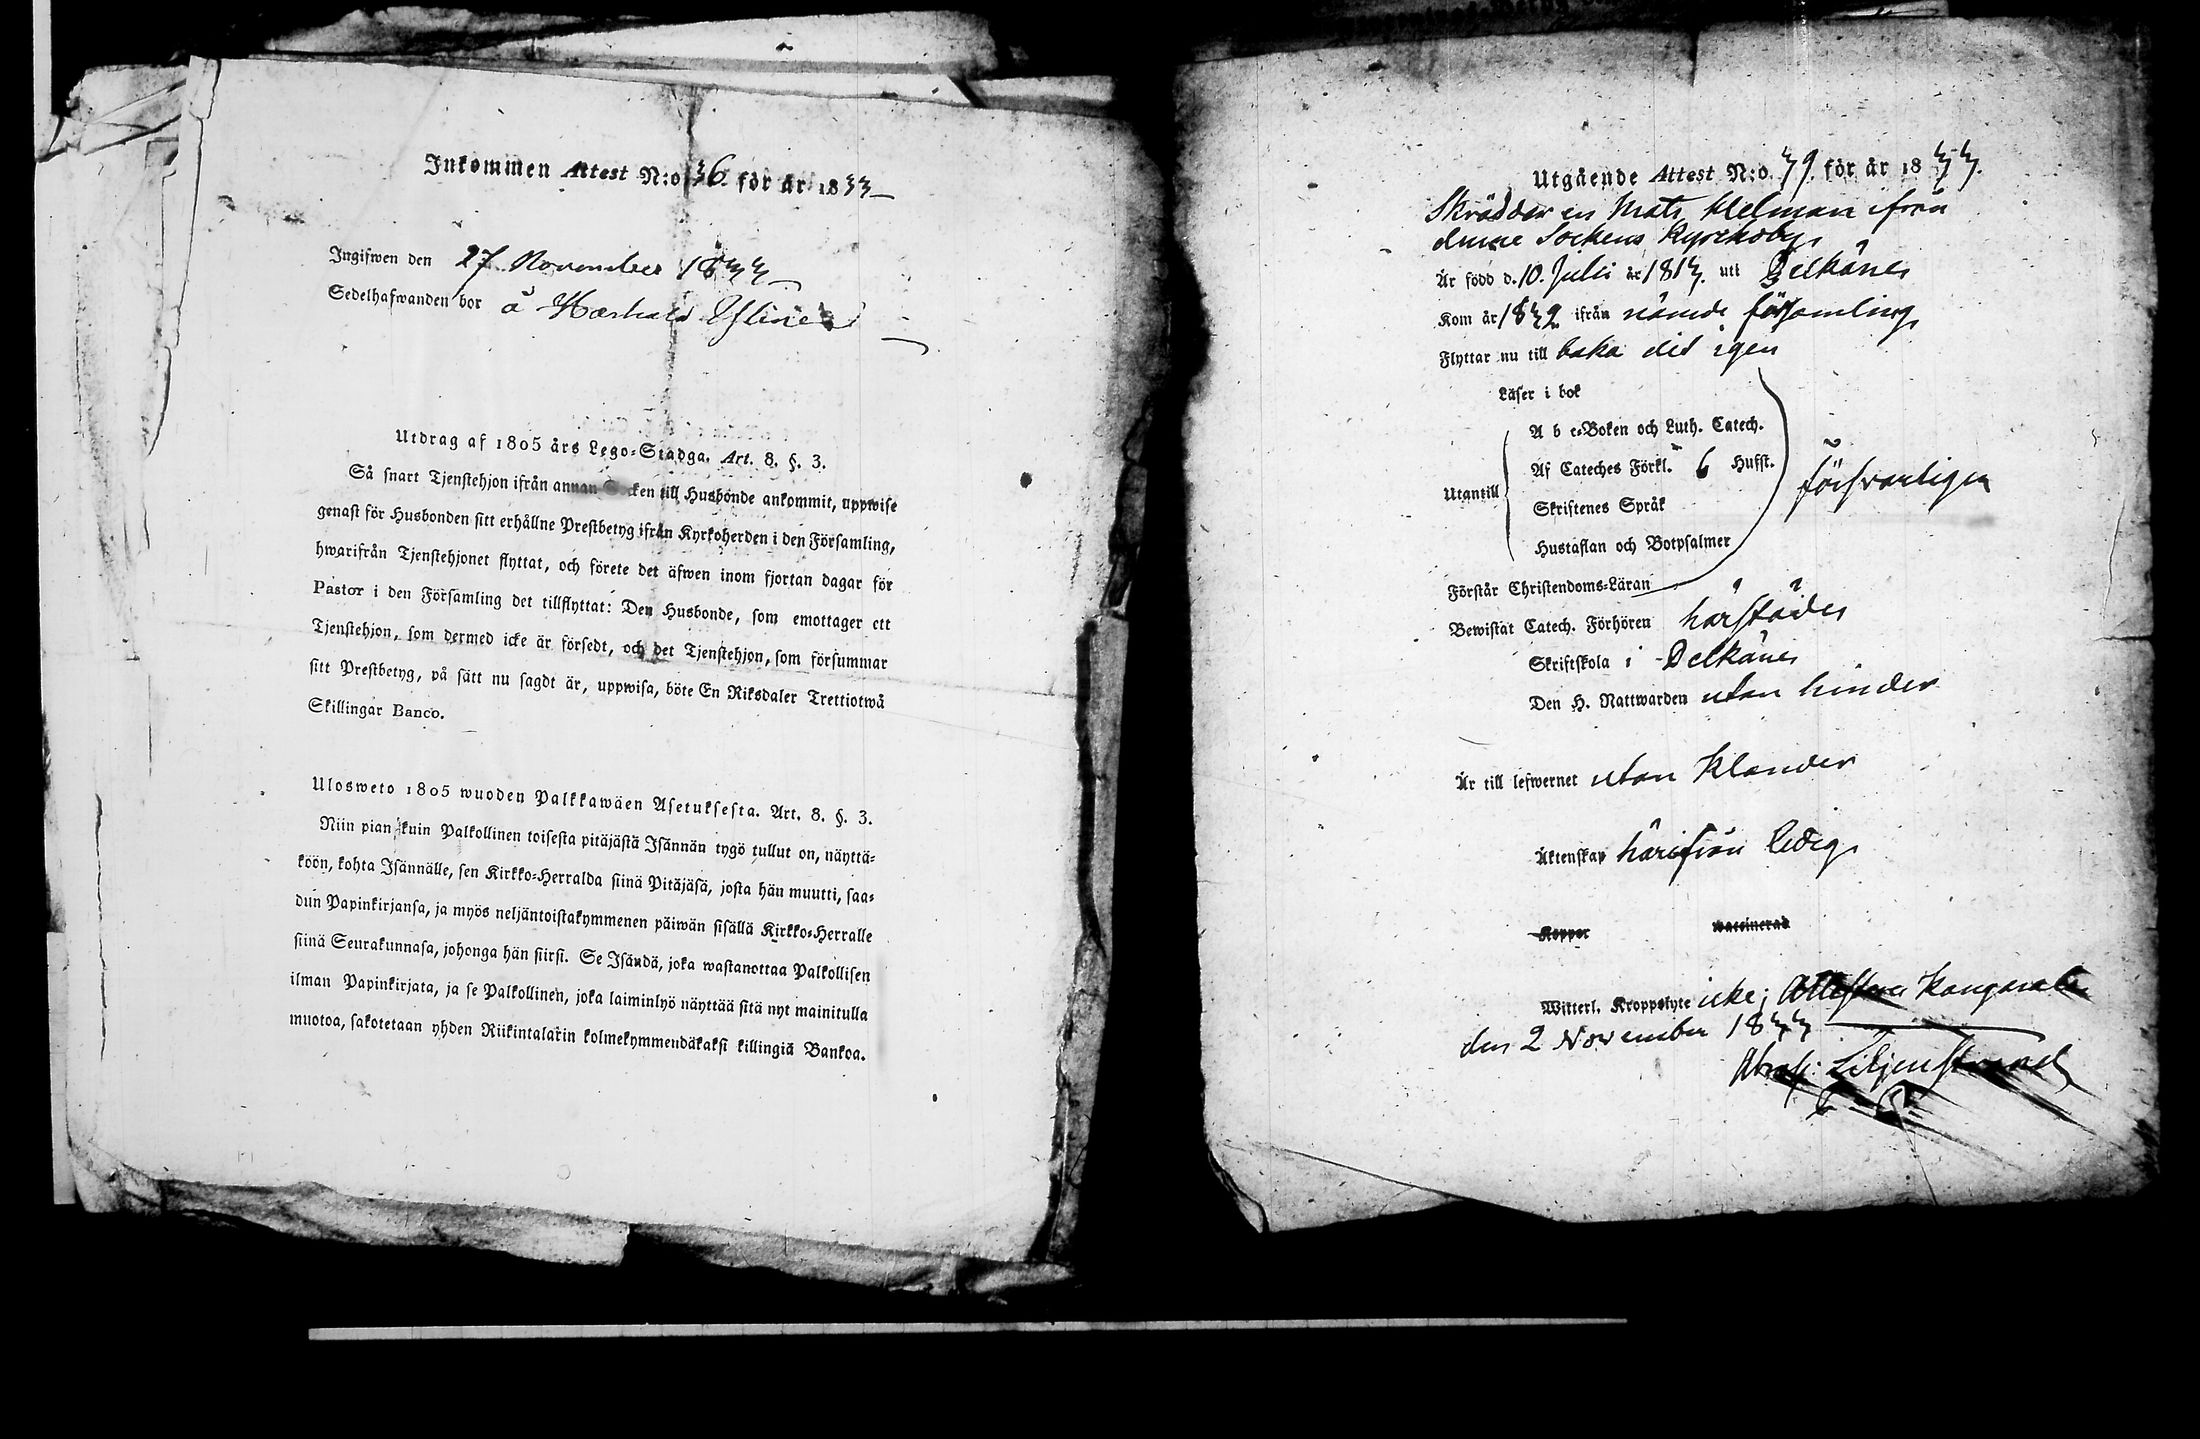 Inkommen Attest N:o 36 för år 1833
Ingifwen den 27 November 1833
Sedelhafwanden bor å
Utdrag af 1805 års Lego-Stadga. Art. 8. §. 3.
Så snart Tjenstehjon ifrån annan Socken till Husbonde ankommit, uppwise
genast för Husbonden sitt erhållne Prestbetyg ifrån Kyrkoherden i den Församling,
hwarifrån Tjenstehjonet flyttat, och förete det äfwen inom fjortan dagar för
Pastor i den Församling det tillflyttat: Den Husbonde, som emottager ett
Tjenstehjon, som dermed icke är försedt, och det Tjenstehjon, som försummar
sitt Prestbetyg, på sätt nu sagdt är, uppwisa, böte En Riksdaler Trettiotwå
Skillingar Banco.
Ulosweto 1805 wuoden Palkkawäen Asetuksesta. Art. 8. §. 3.
Niin pian kuin Palkollinen toisesta pitäjästä Isännän tygö tullut on, näyttä-
köön, kohta Isännälle, sen Kirkko-Herralda siinä Pitäjäsä, josta hän muutti, saa-
dun Papinkirjansa, ja myös neljäntoistakymmenen päiwän sisällä Kirkko-Herralle
siinä Seurakunnasa, johonga hän siirsi. Se Isändä, joka wastanottaa Palkollisen
ilman Papinkirjata, ja se Palkollinen, joka laiminlyö näyttää sitä nyt mainitulla
muotoa, sakotetaan yhden Riikintalarin kolmekymmendäkaksi killingiä Bankoa.
Utgående Attest N:o 39 för år 1833.
Skräddaren Mats Helman ifrån
denne Sockens Kyrckoby,
Är född d. 10. Julii år 1813. uti Pelkäne
Kom år 1832 ifrån nämde församling
Flyttar nu till baka dit igen
Läser i bok
A b c-Boken och Luth. Catech.
Af Cateches Förkl. 6 Hufst.
Utantill
försvarligen
Skriftenes Språk
Hustaflan och Botpsalmer
Förstår Christendoms-Läran
Bewistat Catech. Förhören härstädes
Skriftskola i Pelkäne
Den H. Nattwarden utan hinder
Är till lefwernet utan klander
Äktenskap härifrån ledig
Koppor waccinerad
Witterl. Kroppslyte icke; Attesterar Kangasala
den 2 November 1833
Abrah: Liljenstrand